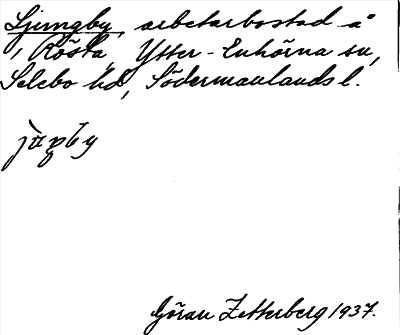 Ljungby, arbetarbostad å
Rösta, Ytter-Enhörna sn,
Selebo hd, Södermanlands l.
Göran Zetterberg 1937.